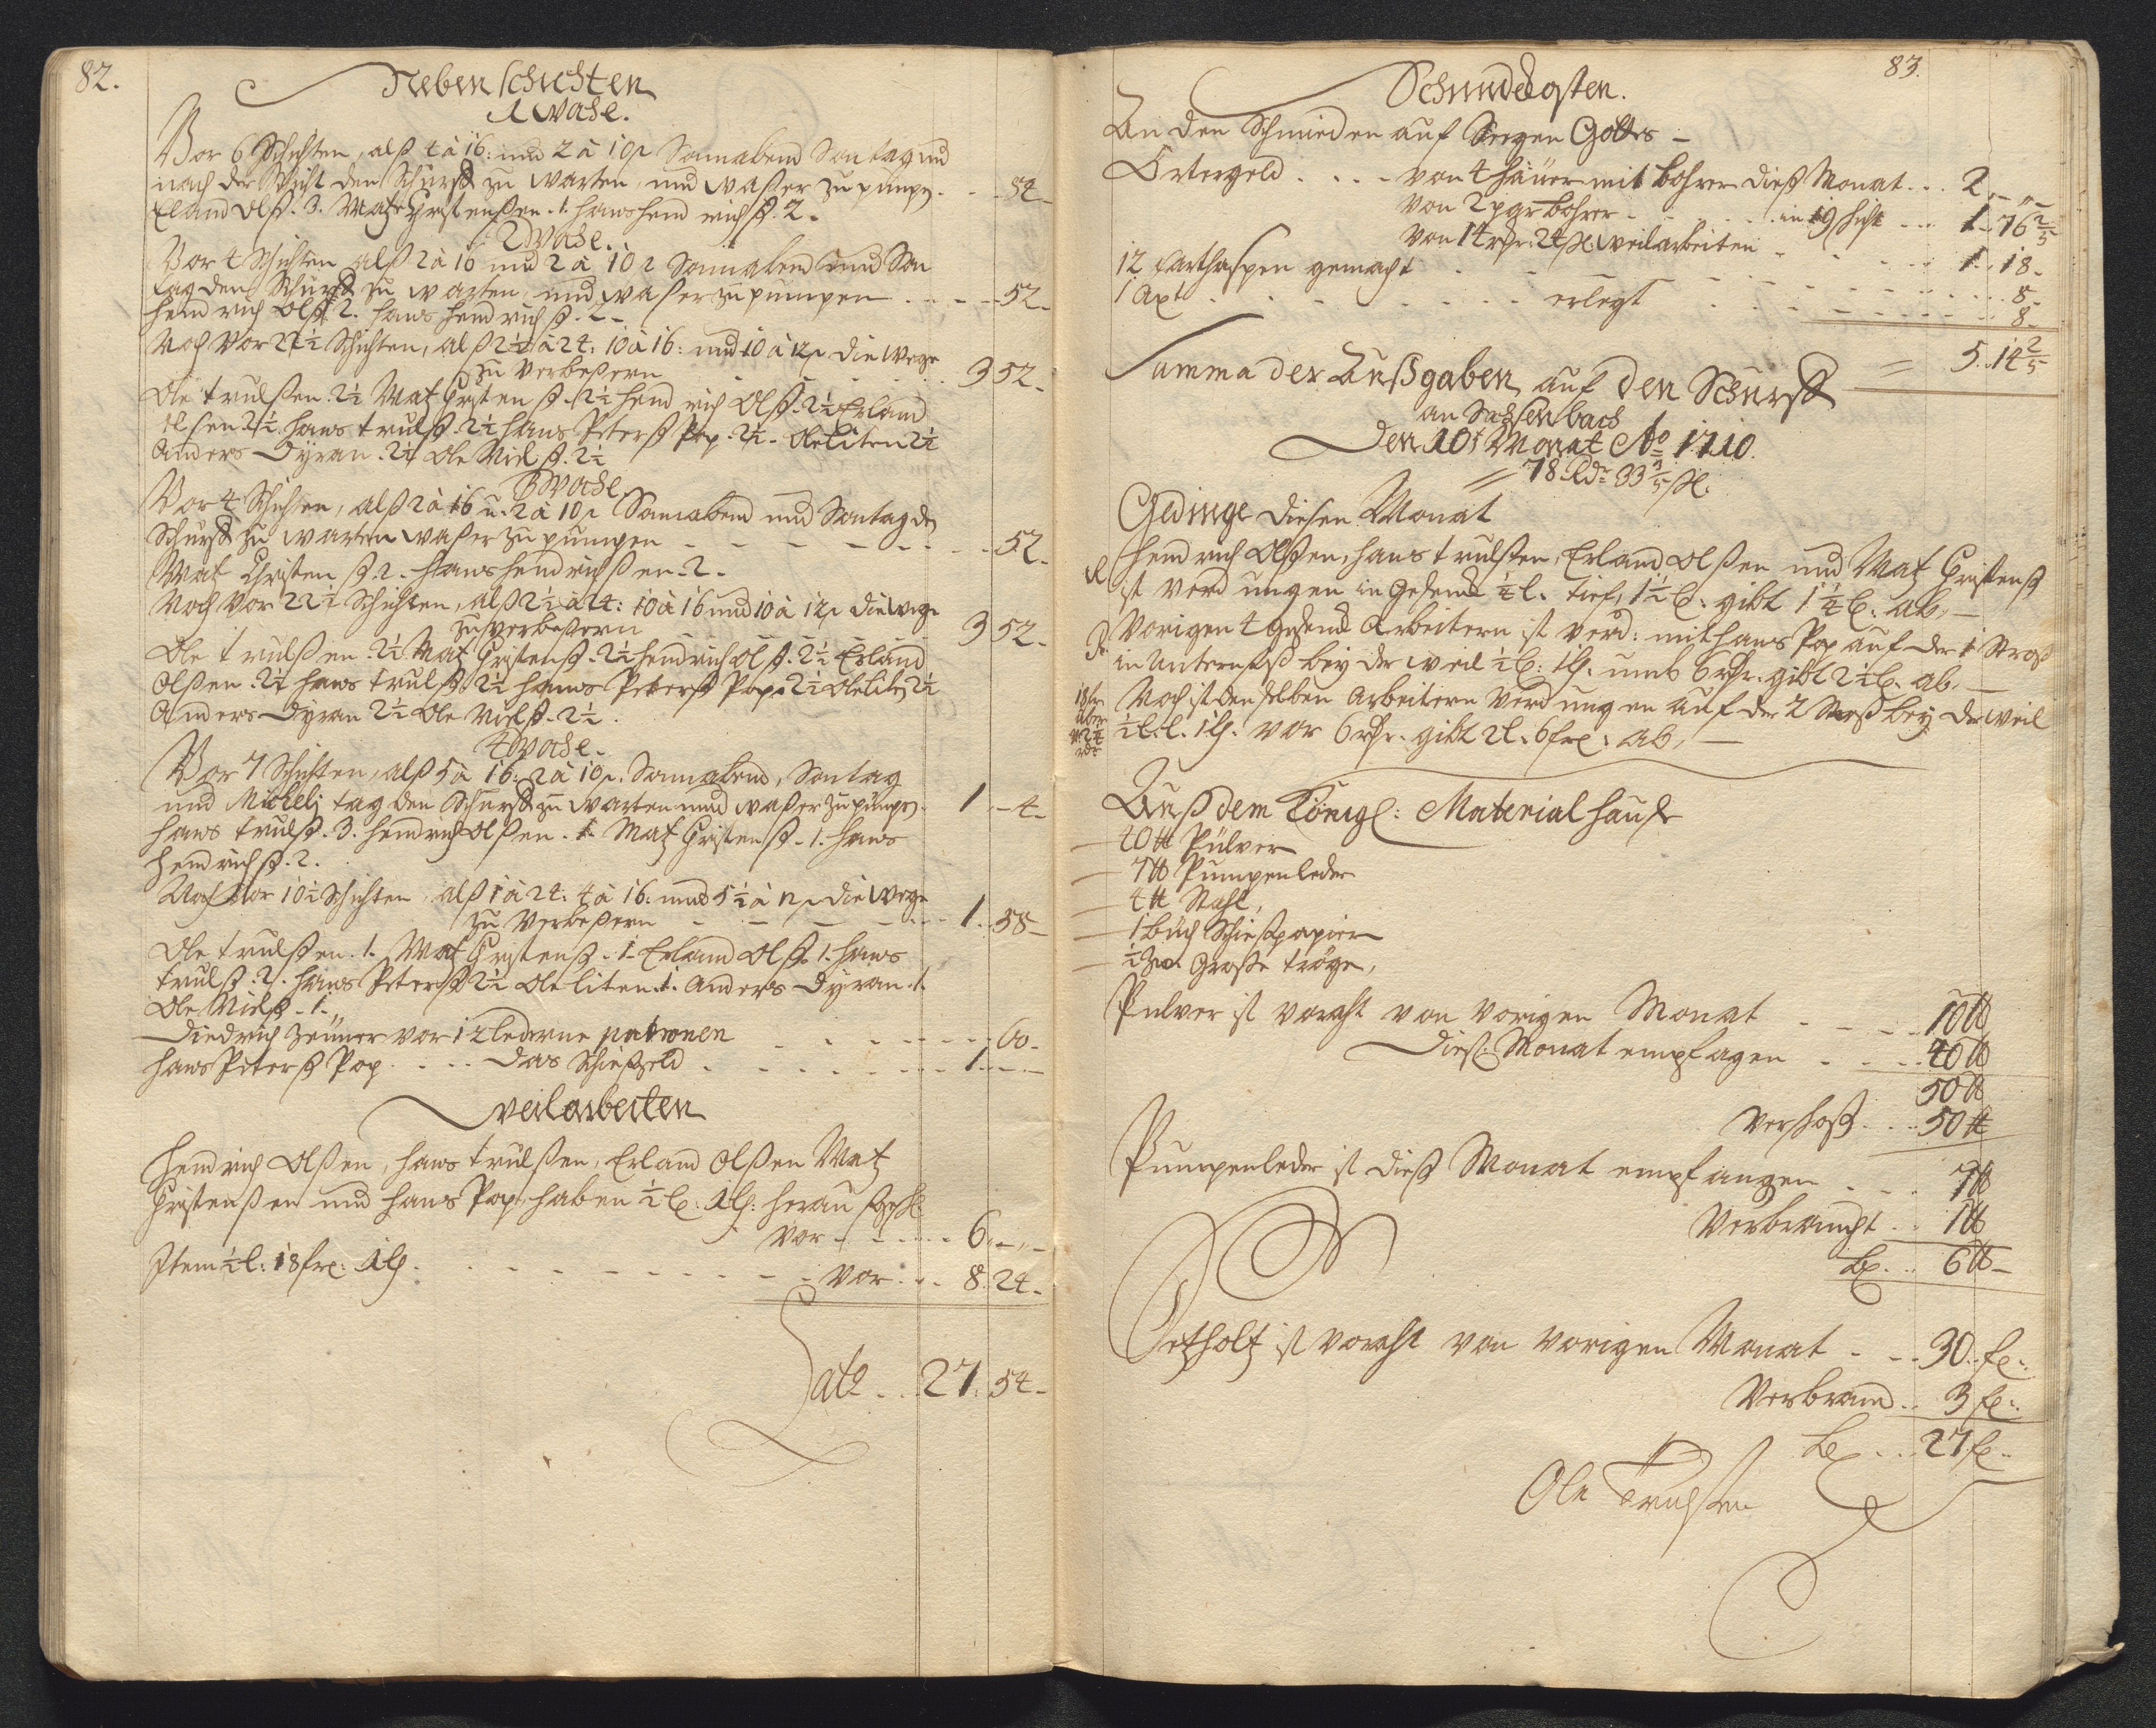 82.
Nebenschichten
1 Woche.
Vor 6 Schichten, alß 4 à 16: und 2 à 10 Sonnabend Sontag und
nach der Schicht den Schurff zu warten, und waßer zu pumpen . . 82 -
Erland Olß. 3. Matz Christenßen. 1. Hans Hendrichß. 2.
2 Woche.
Vor 4 Schichten alß 2 à 16 und 2 à 10 Sonnabend und Son
tag den Schurff zu warten und waßer zu pumpen . . . . 52 -
Hendrich Olß. 2. Hans Hendrichß. 2 -
Noch vor 22½ Schichten, alß 2½ à 24: 10 à 16: und 10 à 12 die Wege
zu verbeßern . . . 3 52 -
Ole Trulßen. 2½ Matz Christenß. 2½ Hendrich Olß. 2½ Erland
Olsen 2½ Hans Trulß. 2½ Hans Peterß Pop. 2½ - Ole Liten 2½
Anders Dyran. 2½ Ole Nielß. 2½
3 Woche
Vor 4 Schichten, alß 2 à 16 u. 2 à 10 Sonnabend und Sontag den
Schurff zu warten waßer zu pumpen . . . . 52 -
Matz Christenß. 2 - Hans Hendrichßen. 2 -
Noch vor 22½ Schichten, alß 2½ à 24: 10 à 16 und 10 à 12 die Wege
zu verbeßern . . 3 52 -
Ole Trulßen 2½ Matz Christenß. 2½ Hendrich Olß. 2½ Erland
Olßen. 2½ Hans Trulß. 2½ Hans Peterß Pop. 2½ Ole Liten 2½
Anders Dyran 2½ Ole Nielß. 2½.
4 Woche.
Vor 7 Schichten, alß 5 à 16: 2 à 10. Sonnabend, Sontag
und Michelj tag den Schurff zu warten und waßer zu pumpen. 1 - 4 -
Hans Trulß. 3. Hendrich Olßen. 1. Matz Christenß. 1. Hans
Hendrichß. 2.
Noch vor 10½ Schichten, alß 1 à 24: 4 à 16: und 5½ à 12 die Wege
zu verbeßern . . . 1. 58 -
Ole Trulßen. 1. Matz Christenß. 1. Erland Olß. 1. Hans
Trulß. 2. Hans Peterß 2½ Ole Liten. 1. Anders Dyran. 1.
Ole Nielß - 1.
Diedrich Zeuner vor 12 lederne patronen . . . . 60 -
Hans Peterß Pop . . . Das Schießgeld . . . . 1 - -
Weilarbeiten
Hendrich Olßen, Hans Trulßen, Erland Olßen Matz
Christenßen und Hans Pop, haben ½ l. 1 l. herauß
vor . . . . 6. - -
Item ½ l: 18 . . . . vor . . 8. 24 -
Late . . 27. 54 -
83.
Schmidekosten.
An den Schmieden auf Seegen Gottes -
Örtergeld . . . . von 4 häuer mit bohrer dieß Monat . . . 2. - -
von 2 par bohrer . . . . in 19 schicht . . . 1. 76 2/5
von 14 : 24 weilarbeiten . . . . 1. 18 -
12 gemacht . . . . 8 -
1 Axt . . . . erlegt . . . . 8 -
Summa der Außgaben auf den Schurff = 5. 14 2/5
an Sachsenbach
Den 10t Monat Ao 1710.
= 78 Rdr 33 3/5 ß.
Gedinge diesen Monat
Hendrich Olßen, Hans Trulßen, Erland Olßen und Matz Christenß
ist verdungen in Gesenk ¼ l. tief, 1½ l. gibt 1¼ l. ab, -
Vorigen 4 Gesenk Arbeitern ist verd: mit Hans Pop auf der 1 Stroß
bey der weil ½ l: 1 l. umb 6 gibt 2½ l. ab, -
Noch ist denselben Arbeitern verdungen auf der 2 Stroß bey der weil
½ l. 1 l. vor 6 gibt 2 l. 6 ab, -
Auß dem Königl: Material hauße
- 40 ℔ Pulver
- 7 ℔ Pumpenleder
- 4 ℔ Stahl,
- 1 buch Schießpapier
- ½ Große tröge,
Pulver ist vorraht von vorigen Monat . . . . 10 ℔
Dieß Monat empfagen . . . . 40 ℔
50 ℔
Verschoß . . . 50 ℔
Pumpenleder ist dieß Monat empfangen . . . 7 ℔
Verbraucht . . 1 ℔
6 ℔ -
Setzholtz ist vorraht von vorigen Monat . . . 30.
Verbrand . . 3
. . . 27
Ole Trulßen